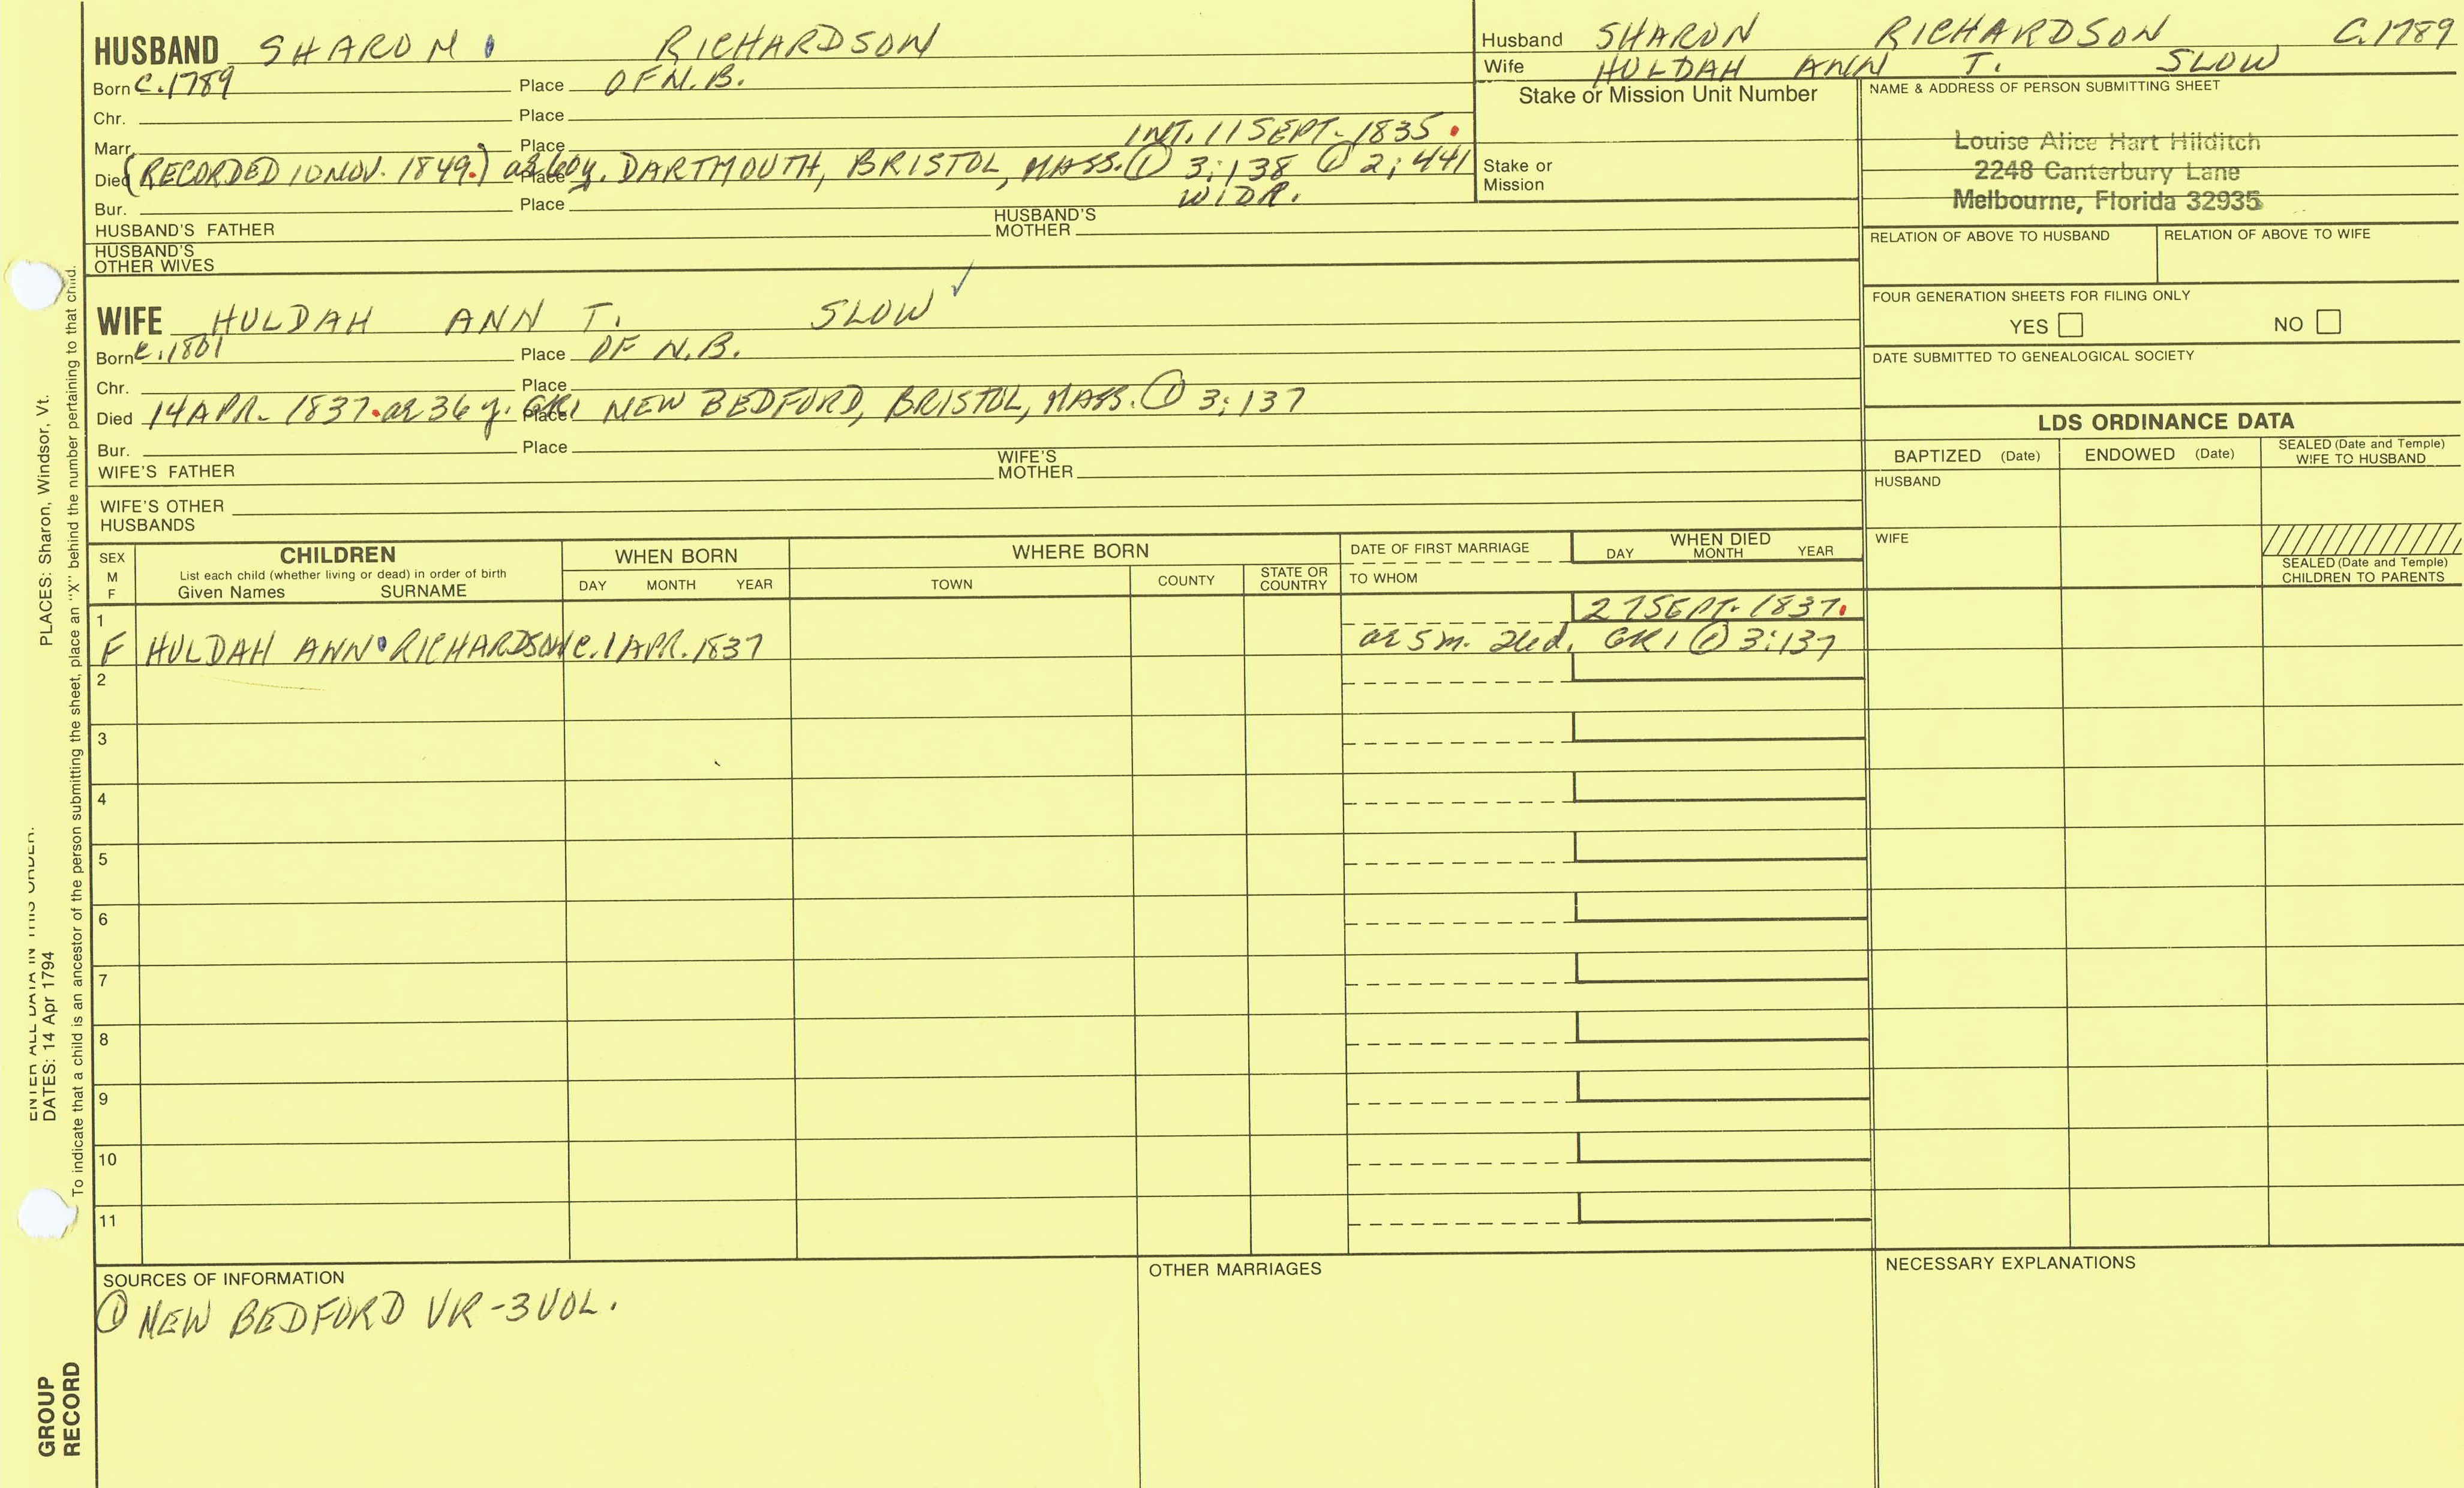 HUSBAND SHARON RICHARDSON
Born C.1789 Place OF N.B.
Chr. Place
INT. 11 SEPT. 1835.
Marr. Place
Died (RECORDED 10 NOV. 1849.) ae 60y. Place DARTMOUTH, BRISTOL, MASS. ① 3:138 ① 2:441
WIDR.
Bur. Place
HUSBAND'S FATHER HUSBAND'S MOTHER
HUSBAND'S OTHER WIVES
Husband SHARON RICHARDSON C.1789
Wife HULDAH ANN T. SLOW
Stake or Mission Unit Number
Stake or Mission
NAME & ADDRESS OF PERSON SUBMITTING SHEET
Louise Alice Hart Hilditch
2248 Canterbury Lane
Melbourne, Florida 32935
RELATION OF ABOVE TO HUSBAND RELATION OF ABOVE TO WIFE
FOUR GENERATION SHEETS FOR FILING ONLY
YES NO
DATE SUBMITTED TO GENEALOGICAL SOCIETY
WIFE HULDAH ANN T. SLOW ✓
Born C.1801 Place OF N.B.
Chr. Place
Died 14 APR. 1837. ae 36 y. GR1 Place NEW BEDFORD, BRISTOL, MASS. ① 3:137
Bur. Place
WIFE'S FATHER WIFE'S MOTHER
WIFE'S OTHER HUSBANDS
LDS ORDINANCE DATA
BAPTIZED (Date) ENDOWED (Date) SEALED (Date and Temple) WIFE TO HUSBAND
HUSBAND
WIFE
SEALED (Date and Temple) CHILDREN TO PARENTS
SEX M F
CHILDREN
List each child (whether living or dead) in order of birth
Given Names SURNAME
WHEN BORN
DAY MONTH YEAR
WHERE BORN
TOWN COUNTY STATE OR COUNTRY
DATE OF FIRST MARRIAGE
TO WHOM
WHEN DIED
DAY MONTH YEAR
1 27 SEPT. 1837.
F HULDAH ANN RICHARDSON C. 1 APR. 1837 ae 5 m. 26d. GR1 ① 3:137
2
3
4
5
6
7
8
9
10
11
SOURCES OF INFORMATION
① NEW BEDFORD VR-3 VOL.
OTHER MARRIAGES
NECESSARY EXPLANATIONS
ENTER ALL DATA IN THIS ORDER:
DATES: 14 Apr 1794 PLACES: Sharon, Windsor, Vt.
To indicate that a child is an ancestor of the person submitting the sheet, place an "X" behind the number pertaining to that child.
GROUP
RECORD